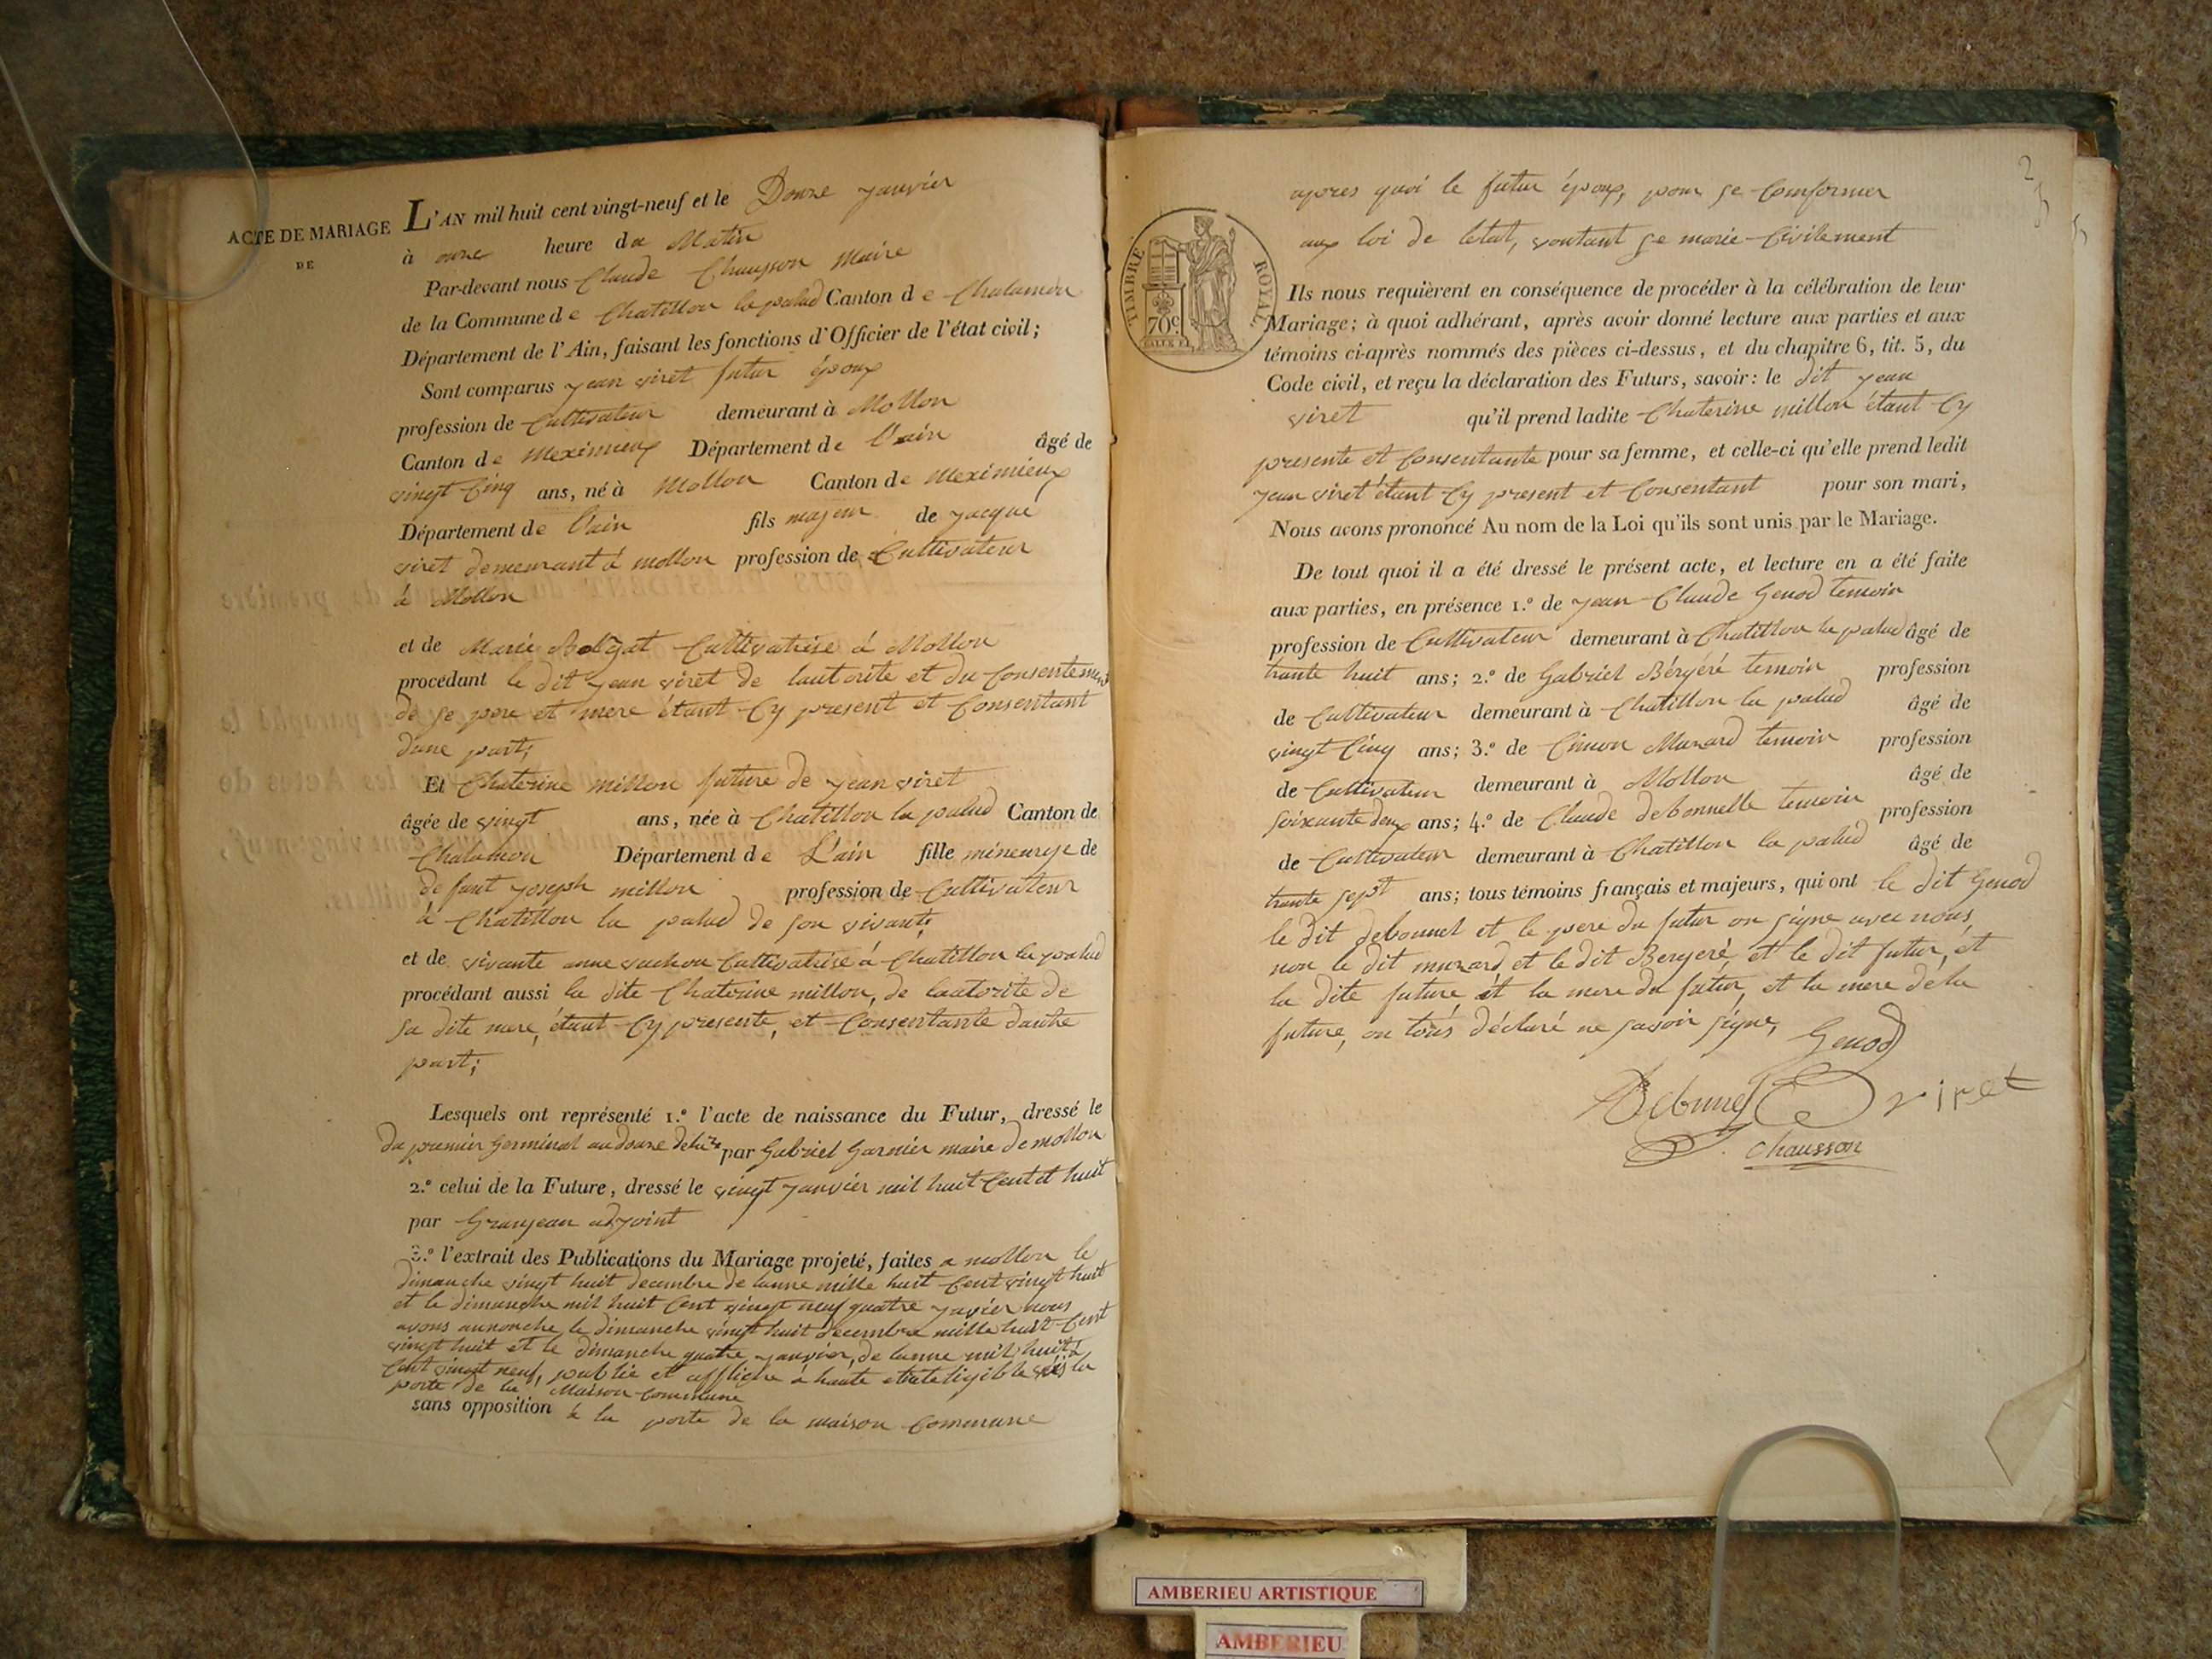 ACTE DE MARIAGE
DE
L'AN mil huit cent vingt-neuf et le Douze janvier
à onze heure du Matin
Par-devant nous Claude Chausson Maire
de la Commune de Chatillon la palud Canton de Chalamon
Département de l'Ain, faisant les fonctions d'Officier de l'état civil;
Sont comparus jean viret futur époux
profession de Cultivateur demeurant à Mollon
Canton de Meximieux Département de l'ain âgé de
vingt Cinq ans, né à Mollon Canton de Meximieux
Département de l'ain fils majeur de jacque
viret demeurant à mollon profession de Cultivateur
à Mollon
et de Marie Cultivatrise à Mollon
procédant le dit jean viret de lautorité et du Consentement
de se pere et mere étant Cy present et Consentant
dune part;
Et Chaterine millon future de jean viret
âgée de vingt ans, née à Chatillon la palud Canton de
Chalamon Département de L'ain fille mineure de
defunt joseph millon profession de Cultivateur
à Chatillon la palud de son vivant;
et de vivante anne vachon Cultivatrise à Chatillon la palud
procédant aussi la dite Chaterine millon, de lautorité de
sa dite mere, étant Cy presente, et Consentante dautre
part;
Lesquels ont représenté 1.º l'acte de naissance du Futur, dressé le
du premier Germinal an douze par Gabriel Garnier maire de mollon
2.º celui de la Future, dressé le vingt janvier mil huit Cent et huit
par Granjean adjoint
3.º l'extrait des Publications du Mariage projeté, faites a mollon le
dimanche vingt huit decembre de lanne mille huit Cent vingt huit
et le dimanche mil huit Cent vingt neuf quatre javier nous
avons annonche le dimanche vingt huit decembre mille huit Cent
vingt huit et le dimanche quatre janvier, de lanne mil huit
Cent vingt neuf, publié et affliche à haute la
porte de la Maison Commune
sans opposition à la porte de la maison Commune
2
apres quoi le futur époux, pour se Comformer
aux loi de letat, voutant se marie Civilement
TIMBRE ROYAL
70c
Ils nous requièrent en conséquence de procéder à la célébration de leur
Mariage; à quoi adhérant, après avoir donné lecture aux parties et aux
témoins ci-après nommés des pièces ci-dessus, et du chapitre 6, tit. 5, du
Code civil, et reçu la déclaration des Futurs, savoir: le dit jean
viret qu'il prend ladite Chaterine millon étant Cy
presente et Consentante pour sa femme, et celle-ci qu'elle prend ledit
jean viret étant Cy present et Consentant pour son mari,
Nous avons prononcé Au nom de la Loi qu'ils sont unis par le Mariage.
De tout quoi il a été dressé le présent acte, et lecture en a été faite
aux parties, en présence 1.º de jean Claude Genod temoin
profession de Cultivateur demeurant à Chatillon la palud âgé de
trante huit ans; 2.º de Gabriel Béryéré temoin profession
de Cultivateur demeurant à Chatillon la palud âgé de
vingt Cinq ans; 3.º de Cimon Munard temoin profession
de Cultivateur demeurant à Mollon âgé de
soixante deux ans; 4.º de Claude debonnelle temoin profession
de Cultivateur demeurant à Chatillon la palud âgé de
trante sept ans; tous témoins français et majeurs, qui ont le dit Genod
le dit debonnel et le pere du futur on signe avec nous
non le dit munard et le dit Beryeré, et le dit futur, et
la dite future et la mere du futur, et la mere de la
future, on tous déclaré ne savoir signe,
Genod
Debunel viret
chausson
AMBERIEU ARTISTIQUE
AMBERIEU